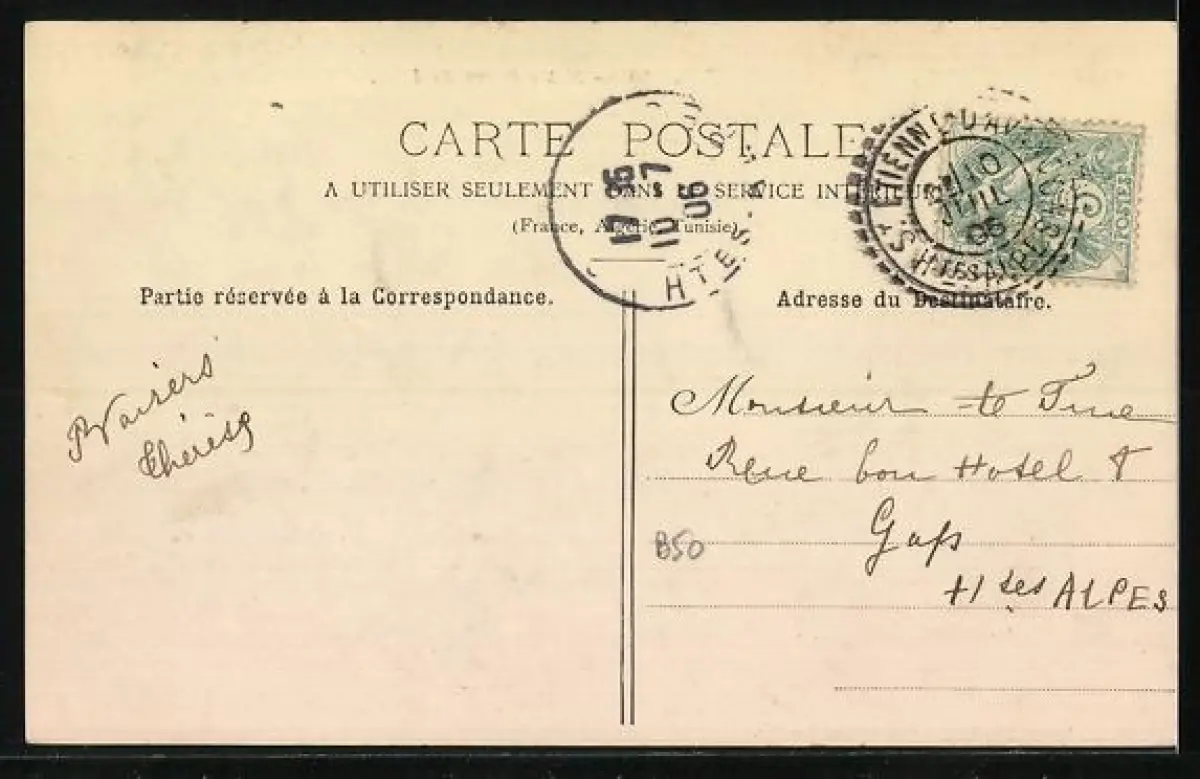 CARTE POSTALE
A UTILISER SEULEMENT DANS LE SERVICE INTÉRIEUR
(France, Algérie, Tunisie)
17 35
10 - 7
06
HTES A
ST ETIENNE D'AV
10
JUIL
06
HTES ALPES
Partie réservée à la Correspondance.
Adresse du Destinataire.
Baisers
Thérèse
Monsieur
Rue bon Hotel 8
B50
Gap
Htes ALPES